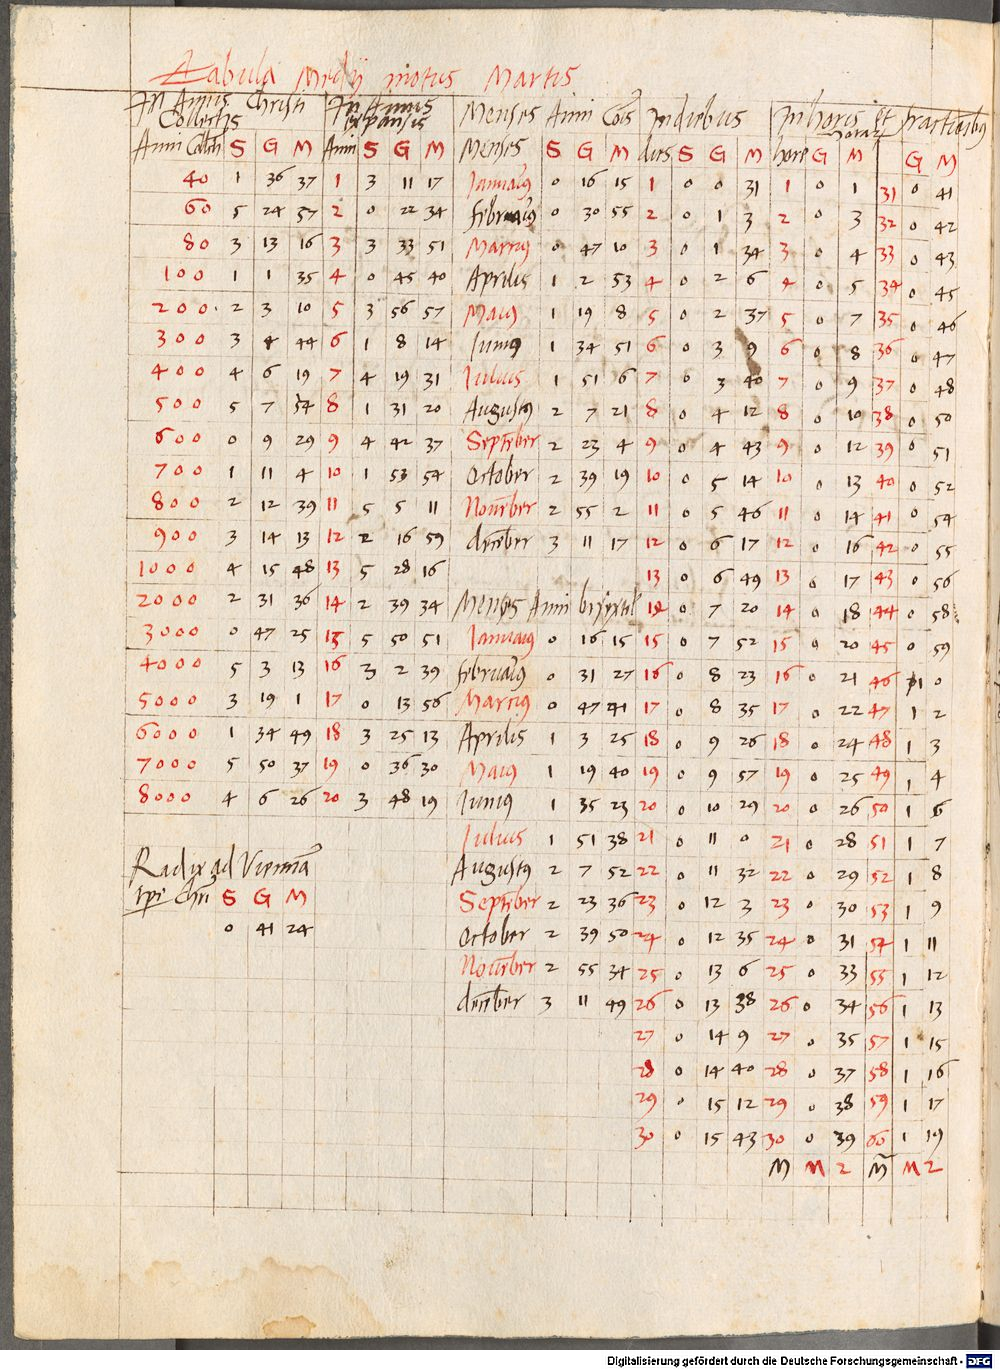 Tabula Medij motus Martis
In Annis Christi Collectis | In Annis expansis | Menses Anni Cōis | In diebus | In horis et horarum fractionibus
Anni Collecti S G M | Anni S G M | Menses S G M | dies S G M | hore G M | G M
40 1 36 37 | 1 3 11 17 | Januarius 0 16 15 | 1 0 0 31 | 1 0 1 | 31 0 41
60 5 24 57 | 2 0 22 34 | februarius 0 30 55 | 2 0 1 3 | 2 0 3 | 32 0 42
80 3 13 16 | 3 3 33 51 | Martius 0 47 10 | 3 0 1 34 | 3 0 4 | 33 0 43
100 1 1 35 | 4 0 45 40 | Aprilis 1 2 53 | 4 0 2 6 | 4 0 5 | 34 0 45
200 2 3 10 | 5 3 56 57 | Maius 1 19 8 | 5 0 2 37 | 5 0 7 | 35 0 46
300 3 4 44 | 6 1 8 14 | Junius 1 34 51 | 6 0 3 9 | 6 0 8 | 36 0 47
400 4 6 19 | 7 4 19 31 | Julius 1 51 6 | 7 0 3 40 | 7 0 9 | 37 0 48
500 5 7 54 | 8 1 31 20 | Augustus 2 7 21 | 8 0 4 12 | 8 0 10 | 38 0 50
600 0 9 29 | 9 4 42 37 | September 2 23 4 | 9 0 4 43 | 9 0 12 | 39 0 51
700 1 11 4 | 10 1 53 54 | October 2 39 19 | 10 0 5 14 | 10 0 13 | 40 0 52
800 2 12 39 | 11 5 5 11 | November 2 55 2 | 11 0 5 46 | 11 0 14 | 41 0 54
900 3 14 13 | 12 2 16 59 | december 3 11 17 | 12 0 6 17 | 12 0 16 | 42 0 55
1000 4 15 48 | 13 5 28 16 | 13 0 6 49 | 13 0 17 | 43 0 56
2000 2 31 36 | 14 2 39 34 | Menses Anni bisextil | 14 0 7 20 | 14 0 18 | 44 0 58
3000 0 47 25 | 15 5 50 51 | Januarius 0 16 15 | 15 0 7 52 | 15 0 20 | 45 0 59
4000 5 3 13 | 16 3 2 39 | februarius 0 31 27 | 16 0 8 23 | 16 0 21 | 46 1 0
5000 3 19 1 | 17 0 13 56 | Martius 0 47 41 | 17 0 8 35 | 17 0 22 | 47 1 2
6000 1 34 49 | 18 3 25 13 | Aprilis 1 3 25 | 18 0 9 26 | 18 0 24 | 48 1 3
7000 5 50 37 | 19 0 36 30 | Maius 1 19 40 | 19 0 9 57 | 19 0 25 | 49 1 4
8000 4 6 26 | 20 3 48 19 | Junius 1 35 23 | 20 0 10 29 | 20 0 26 | 50 1 6
Julius 1 51 38 | 21 0 11 0 | 21 0 28 | 51 1 7
Radix ad Viennā | Augustus 2 7 52 | 22 0 11 32 | 22 0 29 | 52 1 8
tpe Chri S G M | September 2 23 36 | 23 0 12 3 | 23 0 30 | 53 1 9
0 41 24 | October 2 39 50 | 24 0 12 35 | 24 0 31 | 54 1 11
November 2 55 34 | 25 0 13 6 | 25 0 33 | 55 1 12
december 3 11 49 | 26 0 13 38 | 26 0 34 | 56 1 13
27 0 14 9 | 27 0 35 | 57 1 15
28 0 14 40 | 28 0 37 | 58 1 16
29 0 15 12 | 29 0 38 | 59 1 17
30 0 15 43 | 30 0 39 | 60 1 19
M M 2 | M M 2
Digitalisierung gefördert durch die Deutsche Forschungsgemeinschaft - DFG